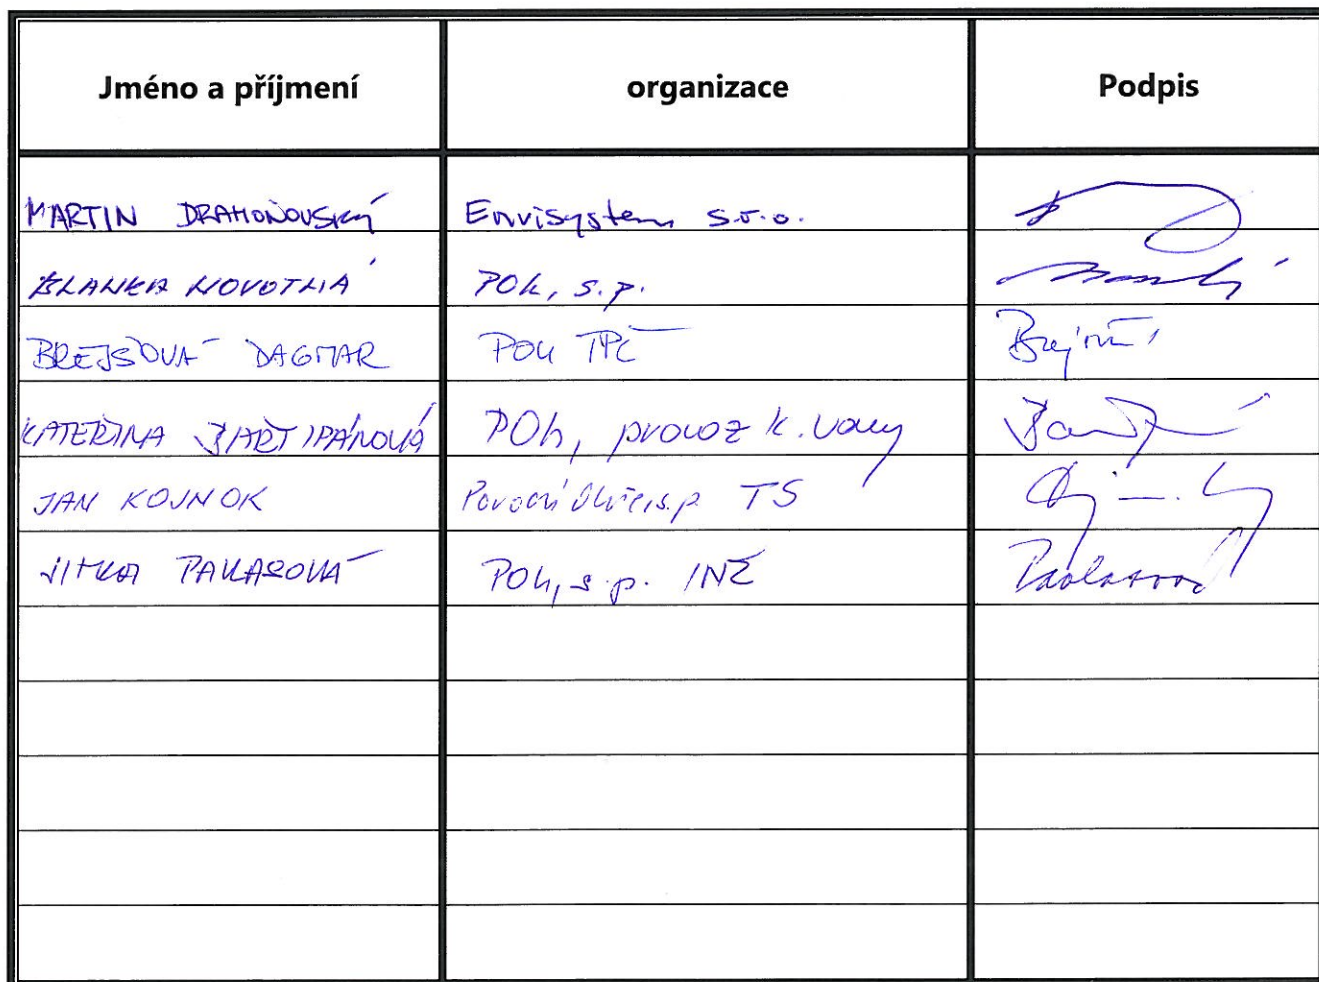 Jméno a příjmení organizace Podpis
MARTIN DRAHOŇOVSKÝ Envisystem s.r.o.
BLANKA NOVOTNÁ POh, s.p.
BREJŠOVÁ DAGMAR POh TPČ
KATEŘINA POh, provoz k. Vary
JAN KOJNOK Povodí Ohře s.p. TS
JITKA PAVLASOVÁ POh, s.p. INŽ